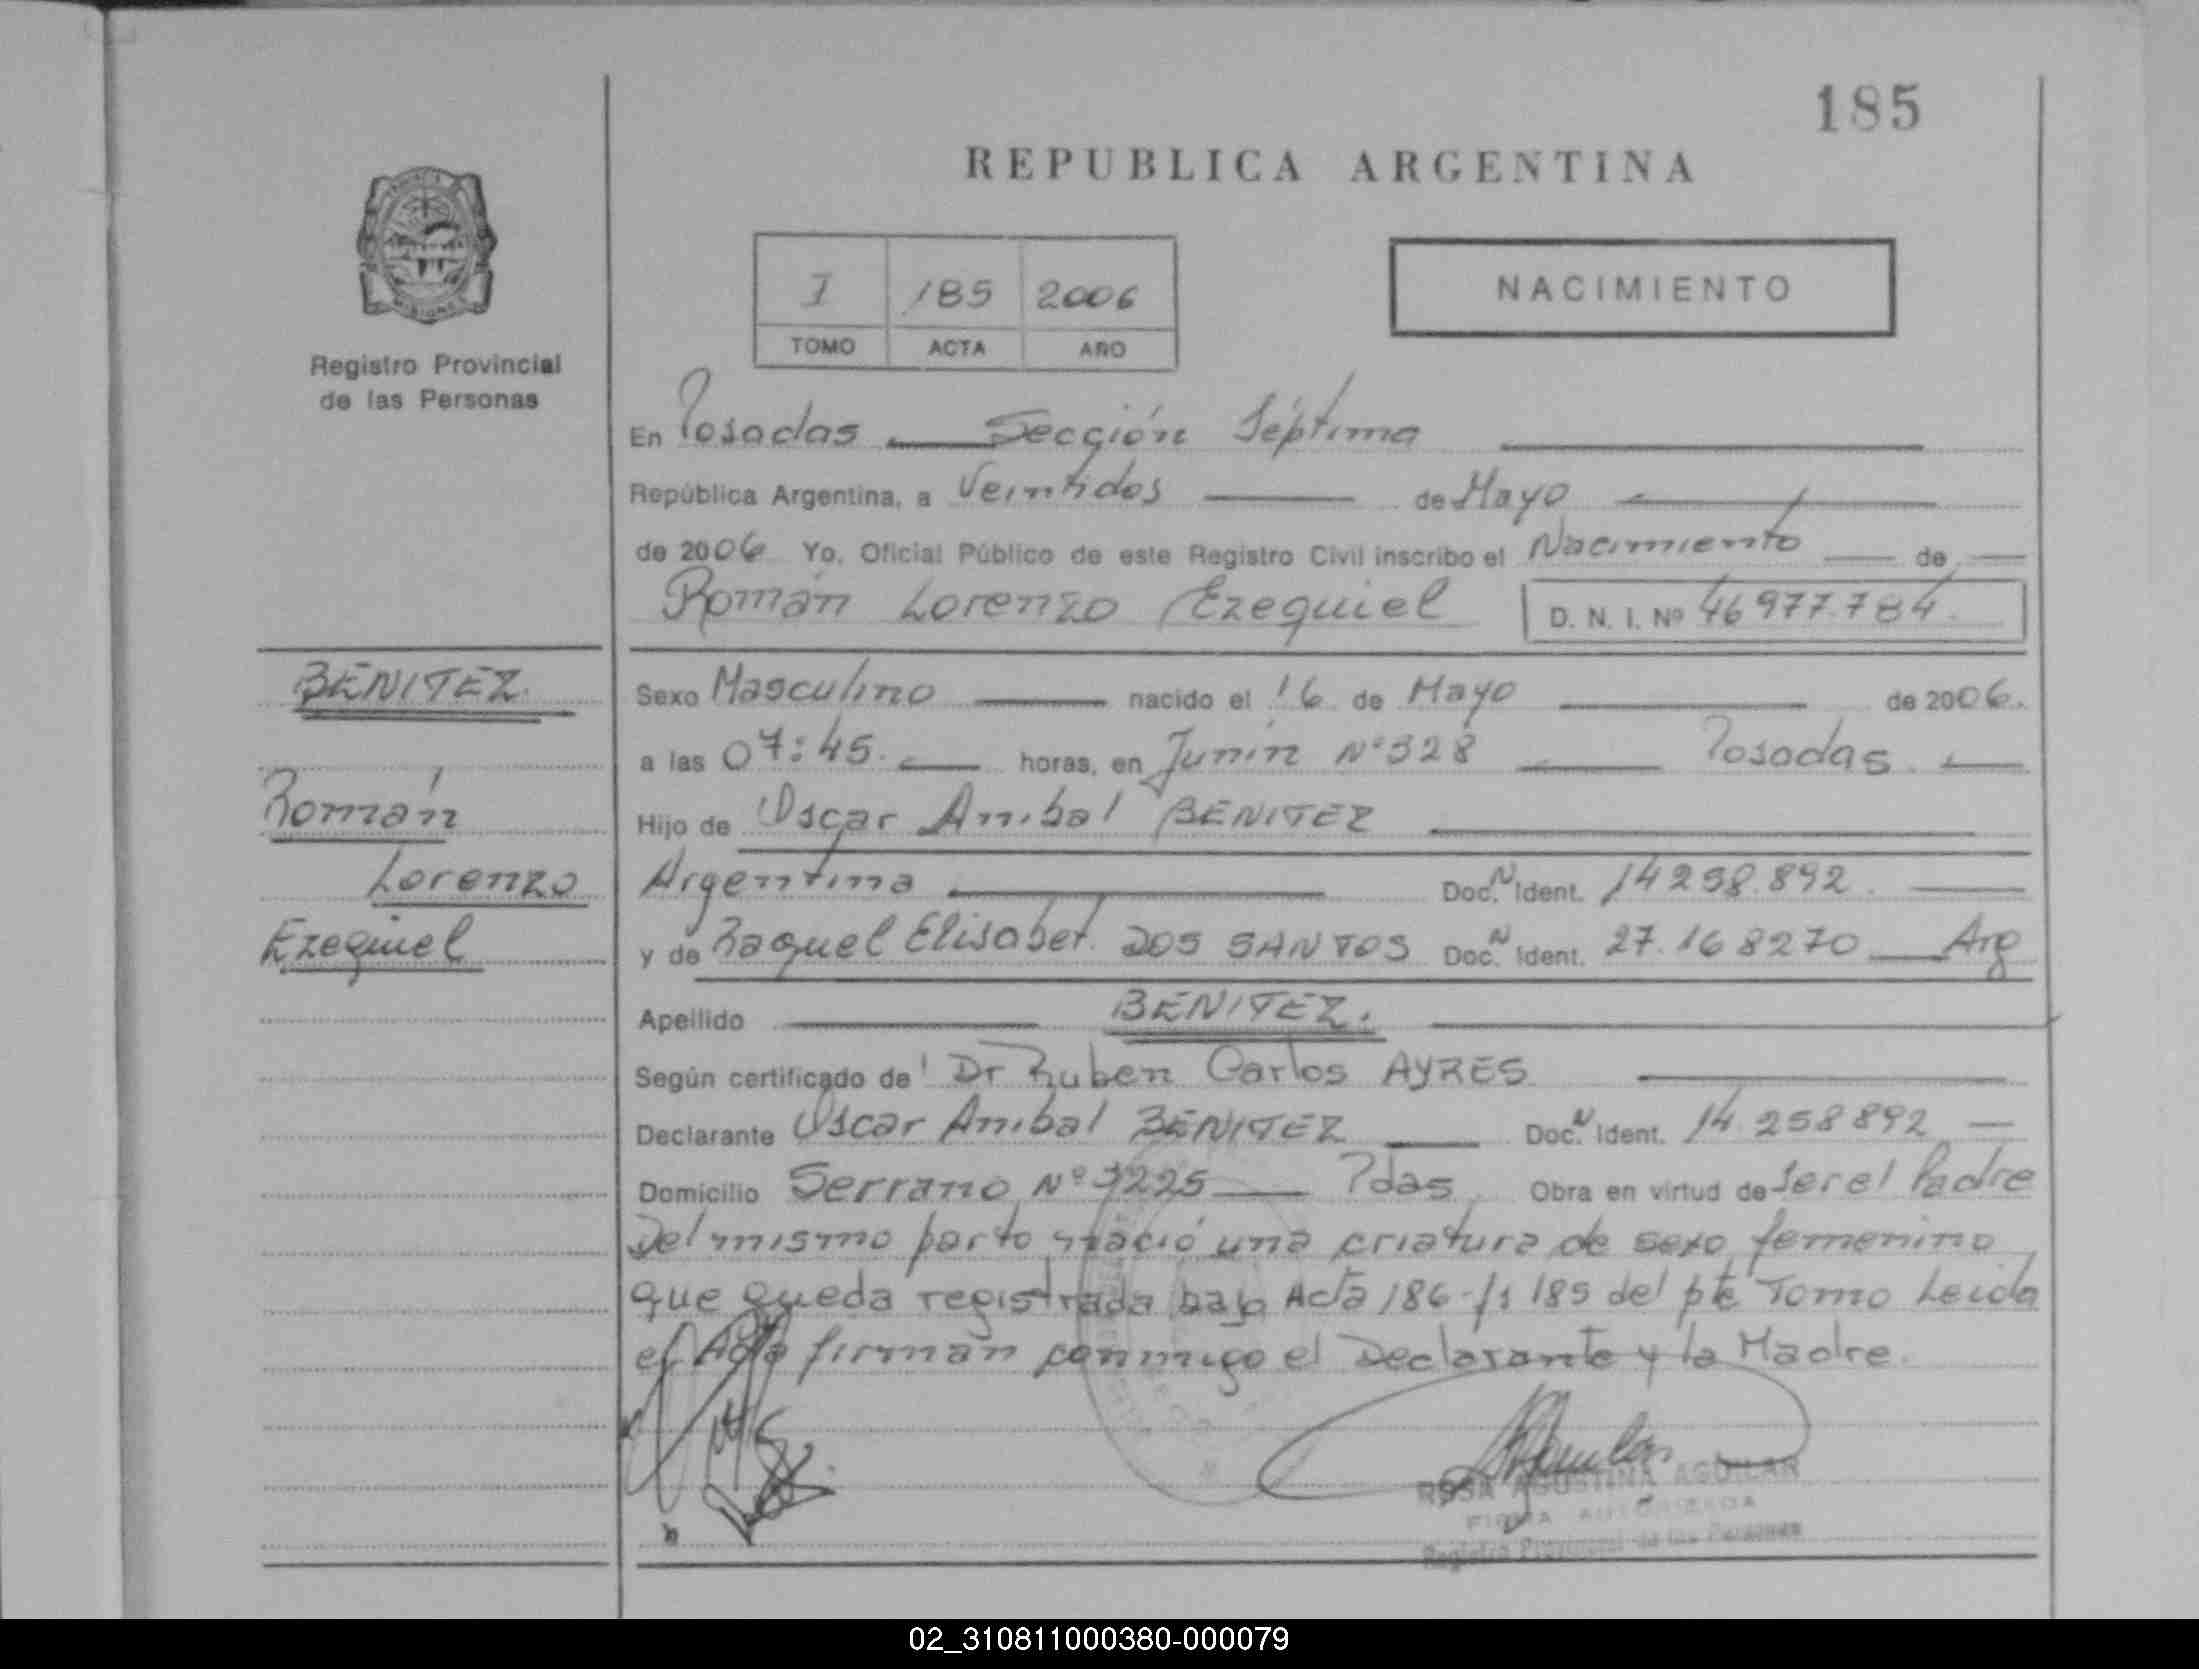 185
REPUBLICA ARGENTINA
I 185 2006
TOMO ACTA AÑO
NACIMIENTO
Registro Provincial
de las Personas
En Posadas Sección Séptima
República Argentina, a Veintidos de Mayo
de 2006 Yo, Oficial Público de este Registro Civil inscribo el Nacimiento de
Román Lorenzo Ezequiel D. N. I. Nº 46977.784.
BENITEZ
Román
Lorenzo
Ezequiel
Sexo Masculino nacido el 16 de Mayo de 2006.
a las 07:45. horas, en Junín Nº 328 Posadas.
Hijo de Oscar Anibal BENITEZ
Argentina Doc. N Ident. 14258.892.
y de Raquel Elisabet. DOS SANTOS Doc. N Ident. 27.168270 Arg
Apellido BENITEZ.
Según certificado de Dr Ruben Carlos AYRES
Declarante Oscar Anibal BENITEZ Doc. N Ident. 14.258892
Domicilio Serrano Nº 3225 Pdas Obra en virtud de Ser el Padre
Del mismo parto nació una criatura de sexo femenino
que queda registrada bajo Acta 186-f1 185 del pte Tomo Leida
el Acta firman conmigo el Declarante y la Madre.
ROSA AGUSTINA AGUILAR
FIRMA AUTORIZADA
Registro Provincial de las Personas
02_310811000380-000079